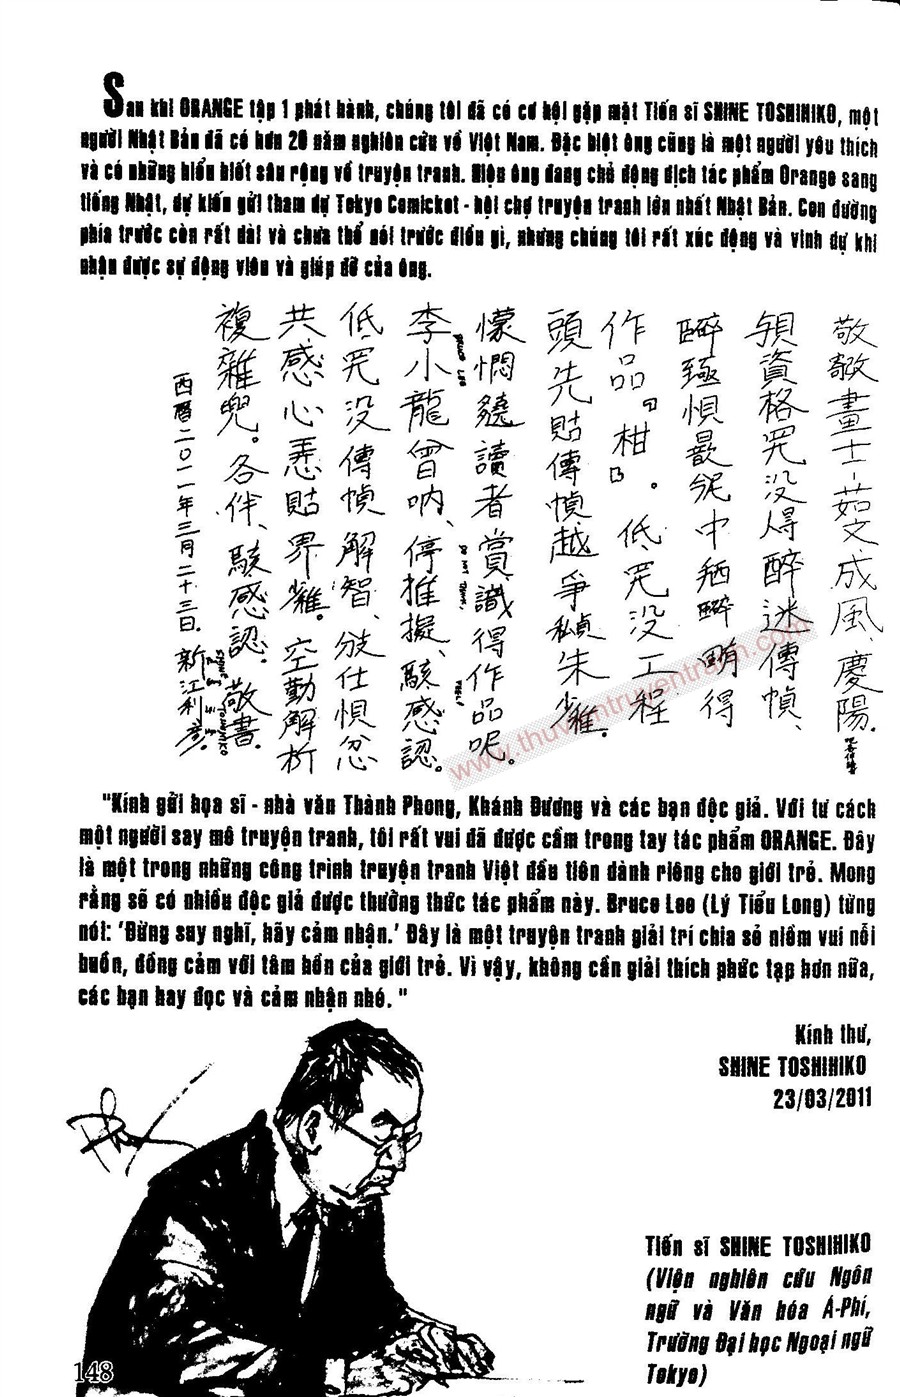 Sau khi ORANGE tập 1 phát hành, chúng tôi đã có cơ hội gặp mặt Tiến sĩ SHINE TOSHIHIKO, một
người Nhật Bản đã có hơn 20 năm nghiên cứu về Việt Nam. Đặc biệt ông cũng là một người yêu thích
và có những hiểu biết sâu rộng về truyện tranh. Hiện ông đang chủ động dịch tác phẩm Orange sang
tiếng Nhật, dự kiến gửi tham dự Tokyo Comicket - hội chợ truyện tranh lớn nhất Nhật Bản. Con đường
phía trước còn rất dài và chưa thể nói trước điều gì, nhưng chúng tôi rất xúc động và vinh dự khi
nhận được sự động viên và giúp đỡ của ông.
畫士-茹文成風、慶陽
資格 没得醉迷傳幀、
中 得
作品。『柑』。低 没工程
頭先 傳幀越爭 朱
讀者賞識得作品呢。
李小龍曾吶、停推擬、 感認。
低 没傳幀解智、
共感心 界 。空勤解析
複雜 。各伴、 感認。敬書。
西暦二〇一一年三月二十三日。新江利彦。
www.thuvientruyentranh.com
"Kính gửi họa sĩ - nhà văn Thành Phong, Khánh Dương và các bạn độc giả. Với tư cách
một người say mê truyện tranh, tôi rất vui đã được cầm trong tay tác phẩm ORANGE. Đây
là một trong những công trình truyện tranh Việt đầu tiên dành riêng cho giới trẻ. Mong
rằng sẽ có nhiều độc giả được thưởng thức tác phẩm này. Bruce Lee (Lý Tiểu Long) từng
nói: 'Đừng suy nghĩ, hãy cảm nhận.' Đây là một truyện tranh giải trí chia sẻ niềm vui nỗi
buồn, đồng cảm với tâm hồn của giới trẻ. Vì vậy, không cần giải thích phức tạp hơn nữa,
các bạn hay đọc và cảm nhận nhé. "
Kính thư,
SHINE TOSHIHIKO
23/03/2011
Tiến sĩ SHINE TOSHIHIKO
(Viện nghiên cứu Ngôn
ngữ và Văn hóa Á-Phi,
Trường Đại học Ngoại ngữ
Tokyo)
148